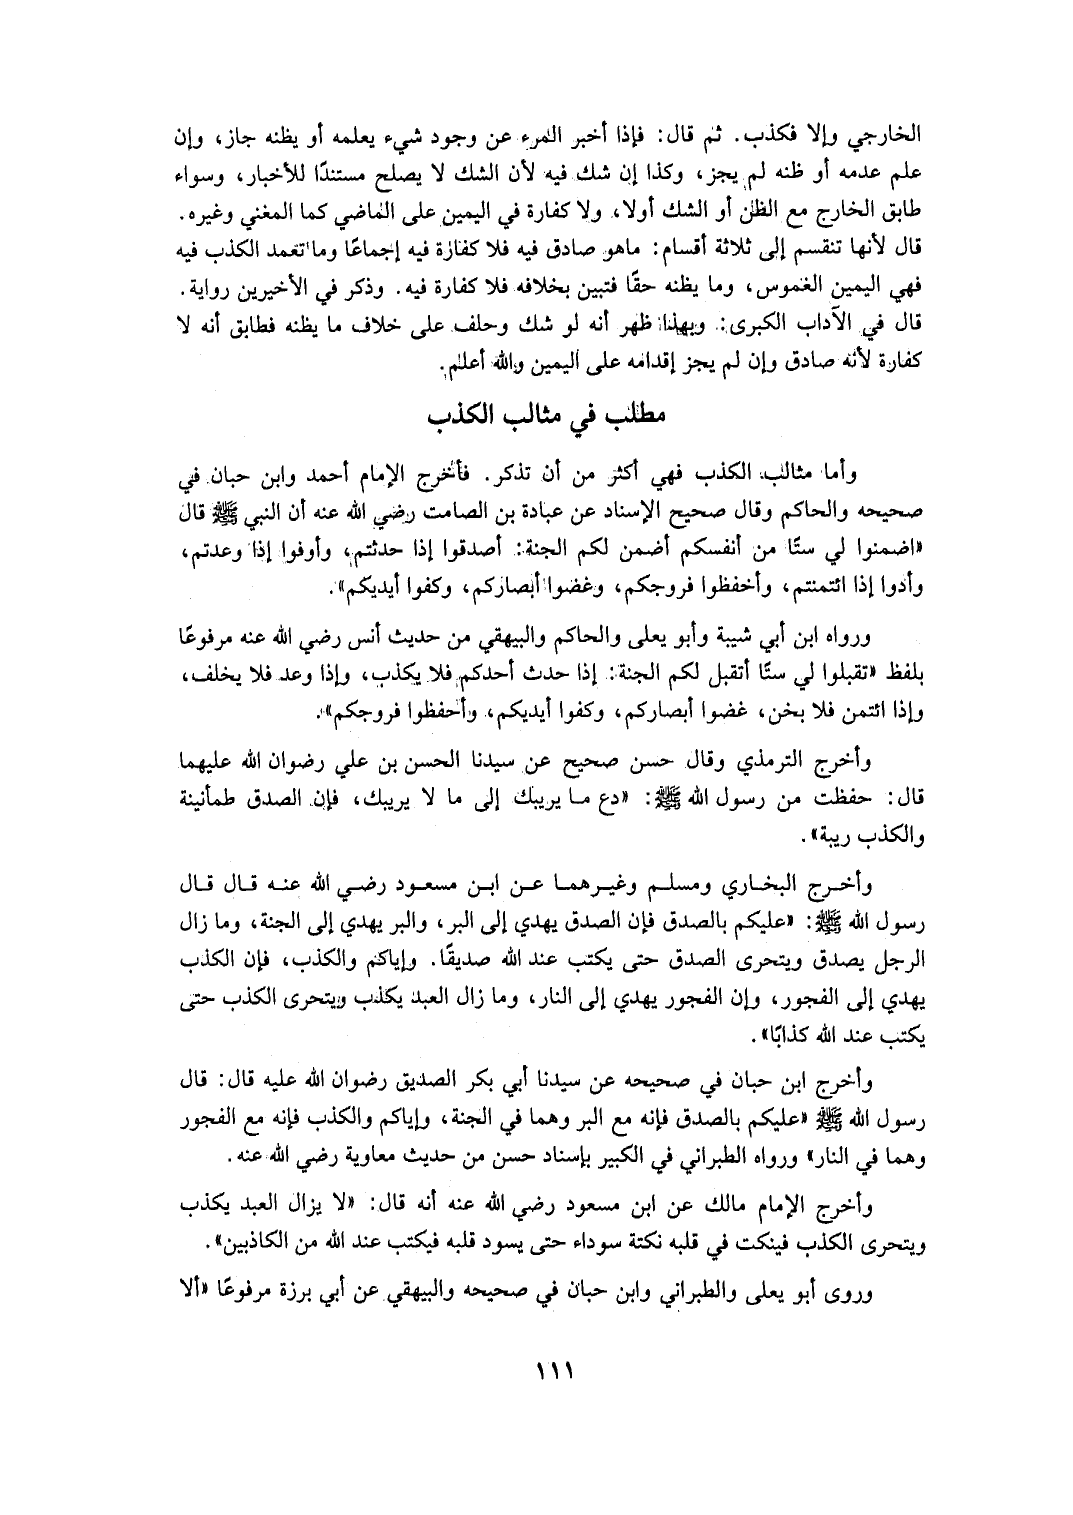 الخارجي وإلا فكذب. ثم قال: فإذا أخبر المرء عن وجود شيء يعلمه أو يظنه جاز، وإن
علم عدمه أو ظنه لم يجز، وكذا إن شك فيه لأن الشك لا يصلح مستندًا للأخبار، وسواء
طابق الخارج مع الظن أو الشك أولا، ولا كفارة في اليمين على الماضي كما المغني وغيره.
قال لأنها تنقسم إلى ثلاثة أقسام: ماهو صادق فيه فلا كفارة فيه إجماعًا وما تعمد الكذب فيه
فهي اليمين الغموس، وما يظنه حقًا فتبين بخلافه فلا كفارة فيه. وذكر في الأخيرين رواية.
قال في الآداب الكبرى: وبهذا ظهر أنه لو شك وحلف على خلاف ما يظنه فطابق أنه لا
كفارة لأنه صادق وإن لم يجز إقدامه على اليمين والله أعلم.
مطلب في مثالب الكذب
وأما مثالب الكذب فهي أكثر من أن تذكر. فأخرج الإمام أحمد وابن حبان في
صحيحه والحاكم وقال صحيح الإسناد عن عبادة بن الصامت رضي الله عنه أن النبي ﷺ قال
«اضمنوا لي ستًا من أنفسكم أضمن لكم الجنة: أصدقوا إذا حدثتم، وأوفوا إذا وعدتم،
وأدوا إذا ائتمنتم، وأخفظوا فروجكم، وغضوا أبصاركم، وكفوا أيديكم».
ورواه ابن أبي شيبة وأبو يعلى والحاكم والبيهقي من حديث أنس رضي الله عنه مرفوعًا
بلفظ «تقبلوا لي ستًا أتقبل لكم الجنة: إذا حدث أحدكم فلا يكذب، وإذا وعد فلا يخلف،
وإذا ائتمن فلا يخن، غضوا أبصاركم، وكفوا أيديكم، وأحفظوا فروجكم».
وأخرج الترمذي وقال حسن صحيح عن سيدنا الحسن بن علي رضوان الله عليهما
قال: حفظت من رسول الله ﷺ: «دع ما يريبك إلى ما لا يريبك، فإن الصدق طمأنينة
والكذب ريبة».
وأخرج البخاري ومسلم وغيرهما عن ابن مسعود رضي الله عنه قال قال
رسول الله ﷺ: «عليكم بالصدق فإن الصدق يهدي إلى البر، والبر يهدي إلى الجنة، وما زال
الرجل يصدق ويتحرى الصدق حتى يكتب عند الله صديقًا. وإياكم والكذب، فإن الكذب
يهدي إلى الفجور، وإن الفجور يهدي إلى النار، وما زال العبد يكذب ويتحرى الكذب حتى
يكتب عند الله كذابًا».
وأخرج ابن حبان في صحيحه عن سيدنا أبي بكر الصديق رضوان الله عليه قال: قال
رسول الله ﷺ «عليكم بالصدق فإنه مع البر وهما في الجنة، وإياكم والكذب فإنه مع الفجور
وهما في النار» ورواه الطبراني في الكبير بإسناد حسن من حديث معاوية رضي الله عنه.
وأخرج الإمام مالك عن ابن مسعود رضي الله عنه أنه قال: «لا يزال العبد يكذب
ويتحرى الكذب فينكت في قلبه نكتة سوداء حتى يسود قلبه فيكتب عند الله من الكاذبين».
وروى أبو يعلى والطبراني وابن حبان في صحيحه والبيهقي عن أبي برزة مرفوعًا «ألا
١١١